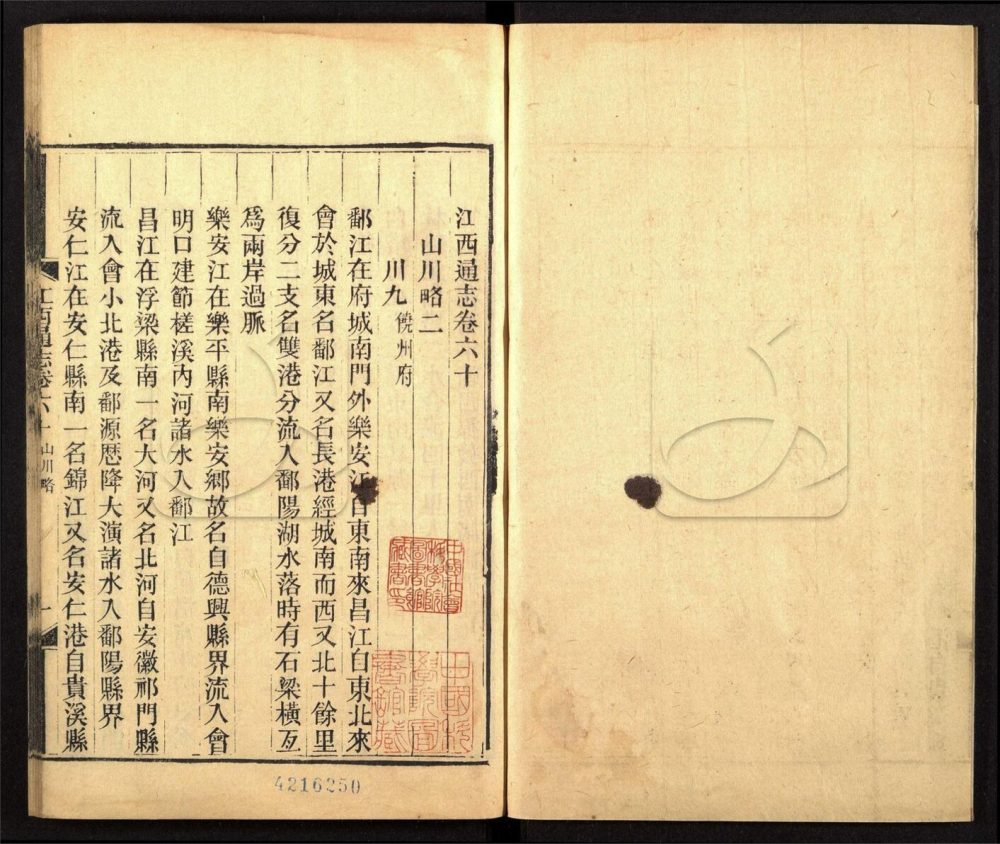 江西通志卷六十
山川略二
川九 饒州府
鄱江在府城南門外樂安江自東南來昌江自東北來
會於城東名鄱江又名長港經城南而西又北十餘里
復分二支名雙港分流入鄱陽湖水落時有石梁橫亙
爲兩岸過脈
樂安江在樂平縣南樂安鄉故名自德興縣界流入會
明口建節槎溪內河諸水入鄱江
昌江在浮梁縣南一名大河又名北河自安徽祁門縣
流入會小北港及鄱源歷降大演諸水入鄱陽縣界
安仁江在安仁縣南一名錦江又名安仁港自貴溪縣
江西通志卷六十 山川略 一
中國社會科學院圖書館藏書印
中國科學院圖書館藏
4216250